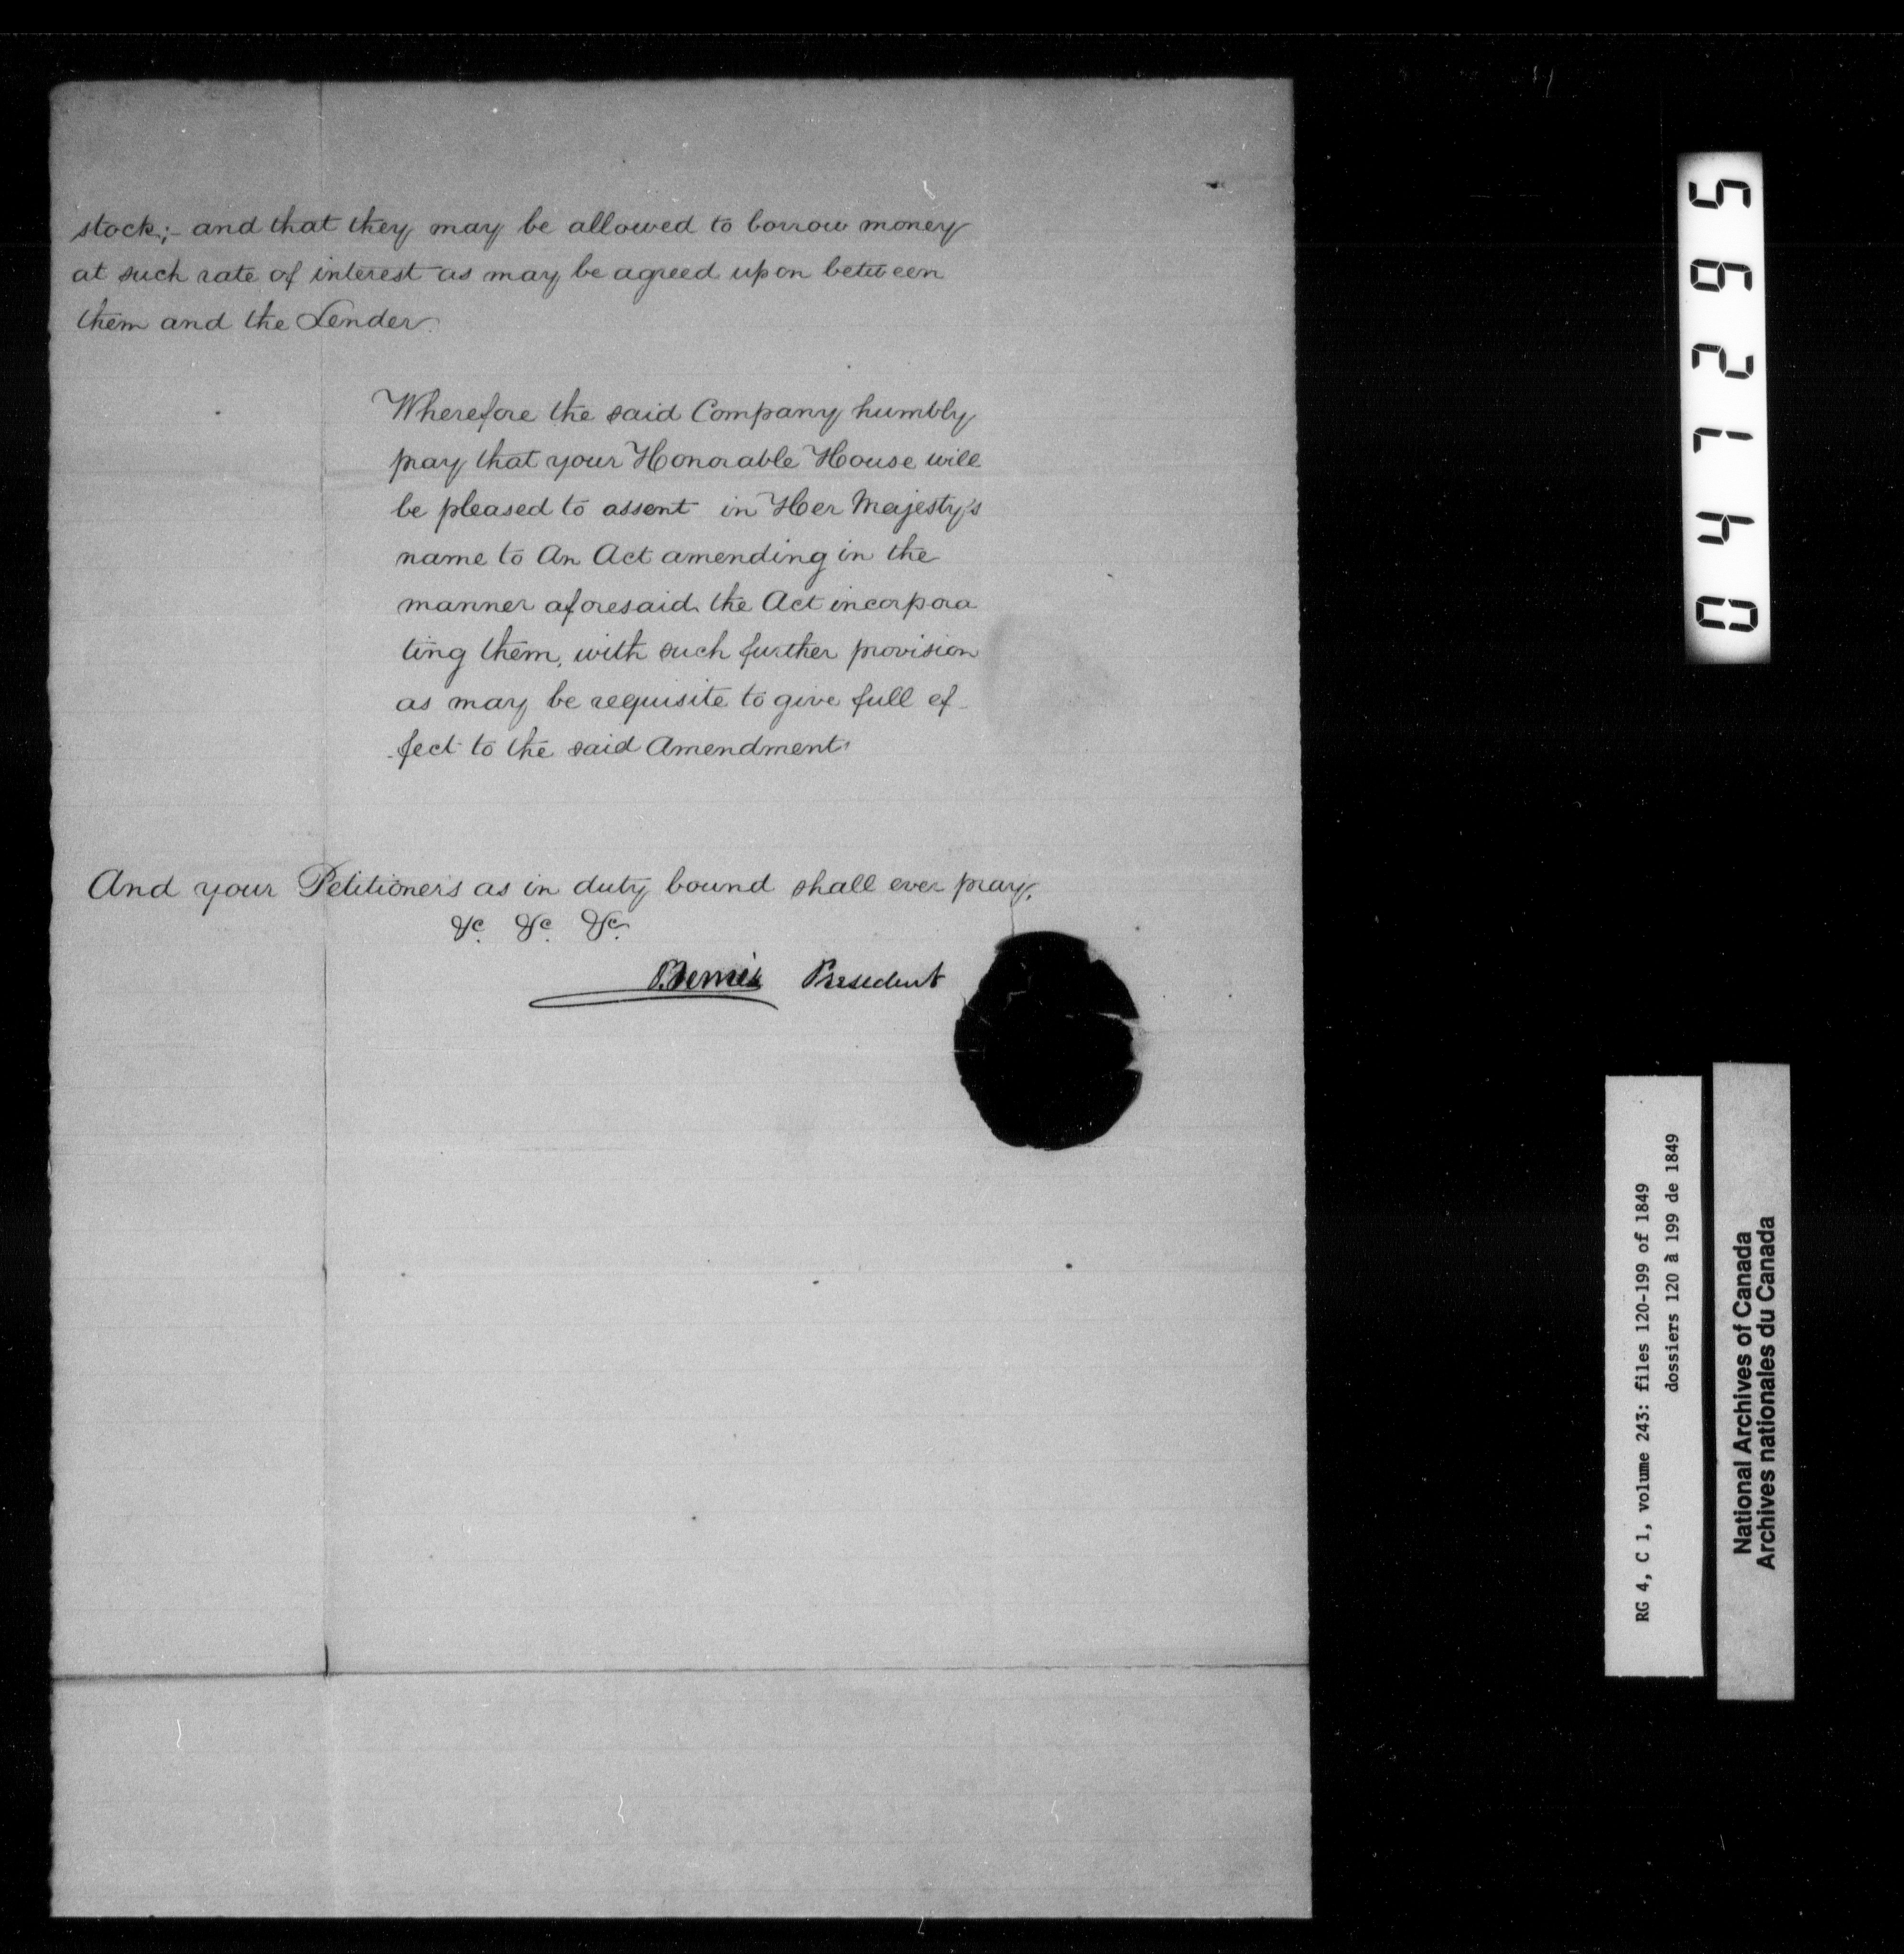 stock;- and that they may be allowed to borrow money
at such rate of interest as may be agreed upon between
them and the Lender.
Wherefore the said Company humbly
pray that your Honorable House will
be pleased to assent in Her Majesty's
name to An Act amending in the
manner aforesaid the Act incorpora
ting them, with such further provision
as may be requisite to give full ef-
-fect to the said Amendment.
And your Petitioners as in duty bound shall ever pray,
&c. &c. &c.
President
041295
RG 4, C 1, volume 243: files 120-199 of 1849
dossiers 120 à 199 de 1849
National Archives of Canada
Archives nationales du Canada